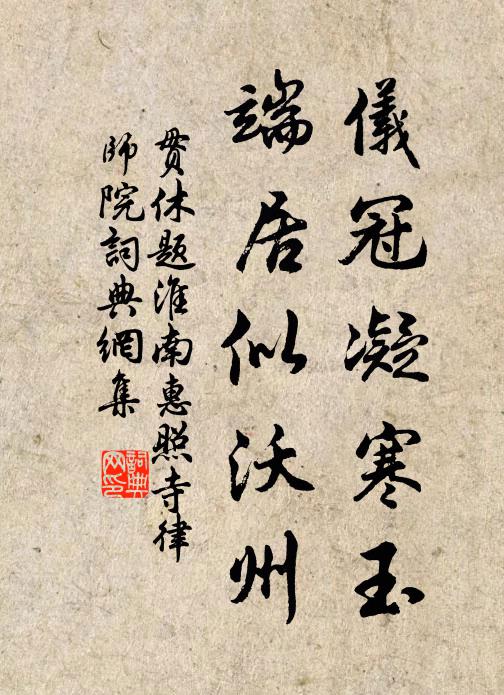 儀冠凝寒玉
端居似沃州
貫休题淮南惠照寺律
師院詞典網集
詞典網印